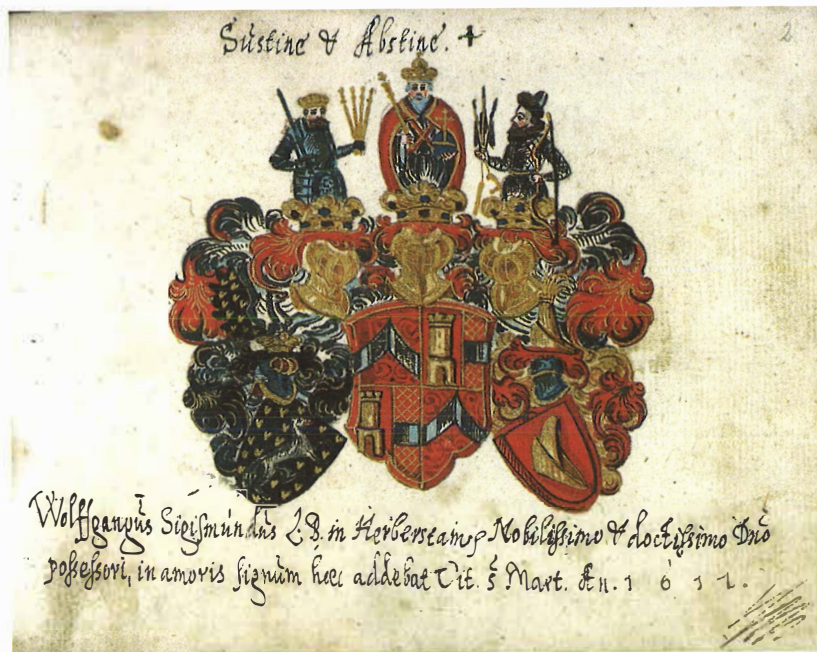 Sustine & Abstine.
2
Wolffgangūs Sigismúndūs L. B. in Herberstain &c Nobilissimo & doctissimo Dnō
possessori, in amoris signūm hoec addebat Tit. 5 Mart. An. 1611.